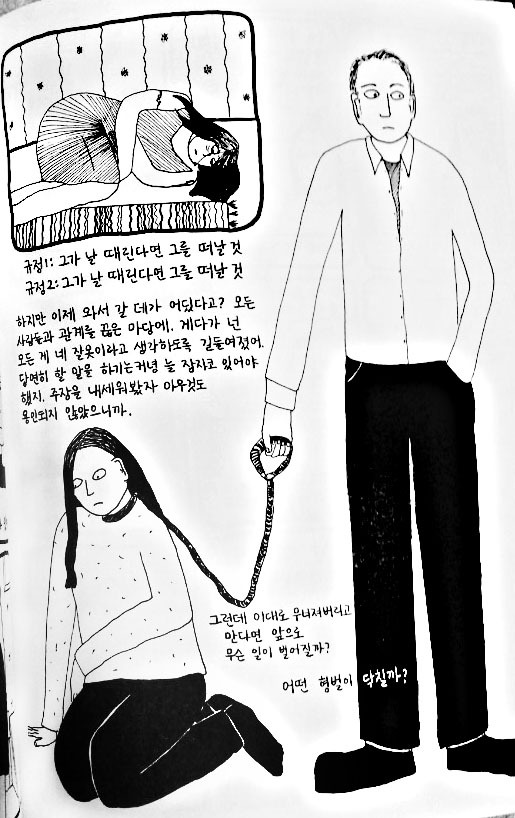 규정1: 그가 날 때린다면 그를 떠날 것
규정2: 그가 날 때린다면 그를 떠날 것
하지만 이제 와서 갈 데가 어딨다고? 모든
사람들과 관계를 끊은 마당에. 게다가 넌
모든 게 네 잘못이라고 생각하도록 길들여졌어.
당연히 할 말을 하기는커녕 늘 잠자코 있어야
했지. 주장을 내세워봤자 아무것도
용인되지 않았으니까.
그런데 이대로 무너져버리고
만다면 앞으로
무슨 일이 벌어질까?
어떤 형벌이 닥칠까?